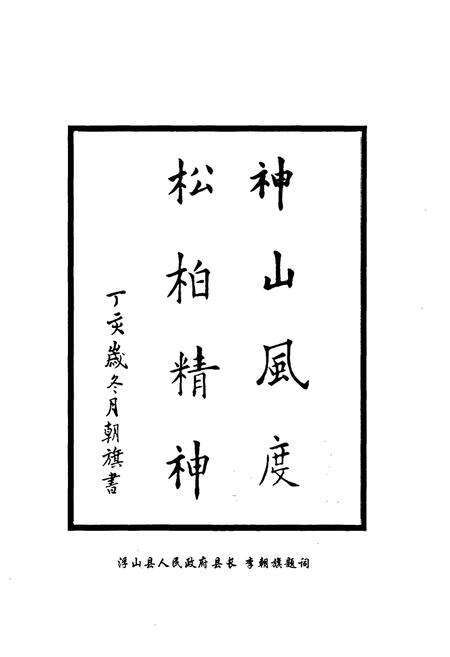 神山風度
松柏精神
丁亥歲冬月朝旗書
浮山县人民政府县长 李朝旗题词